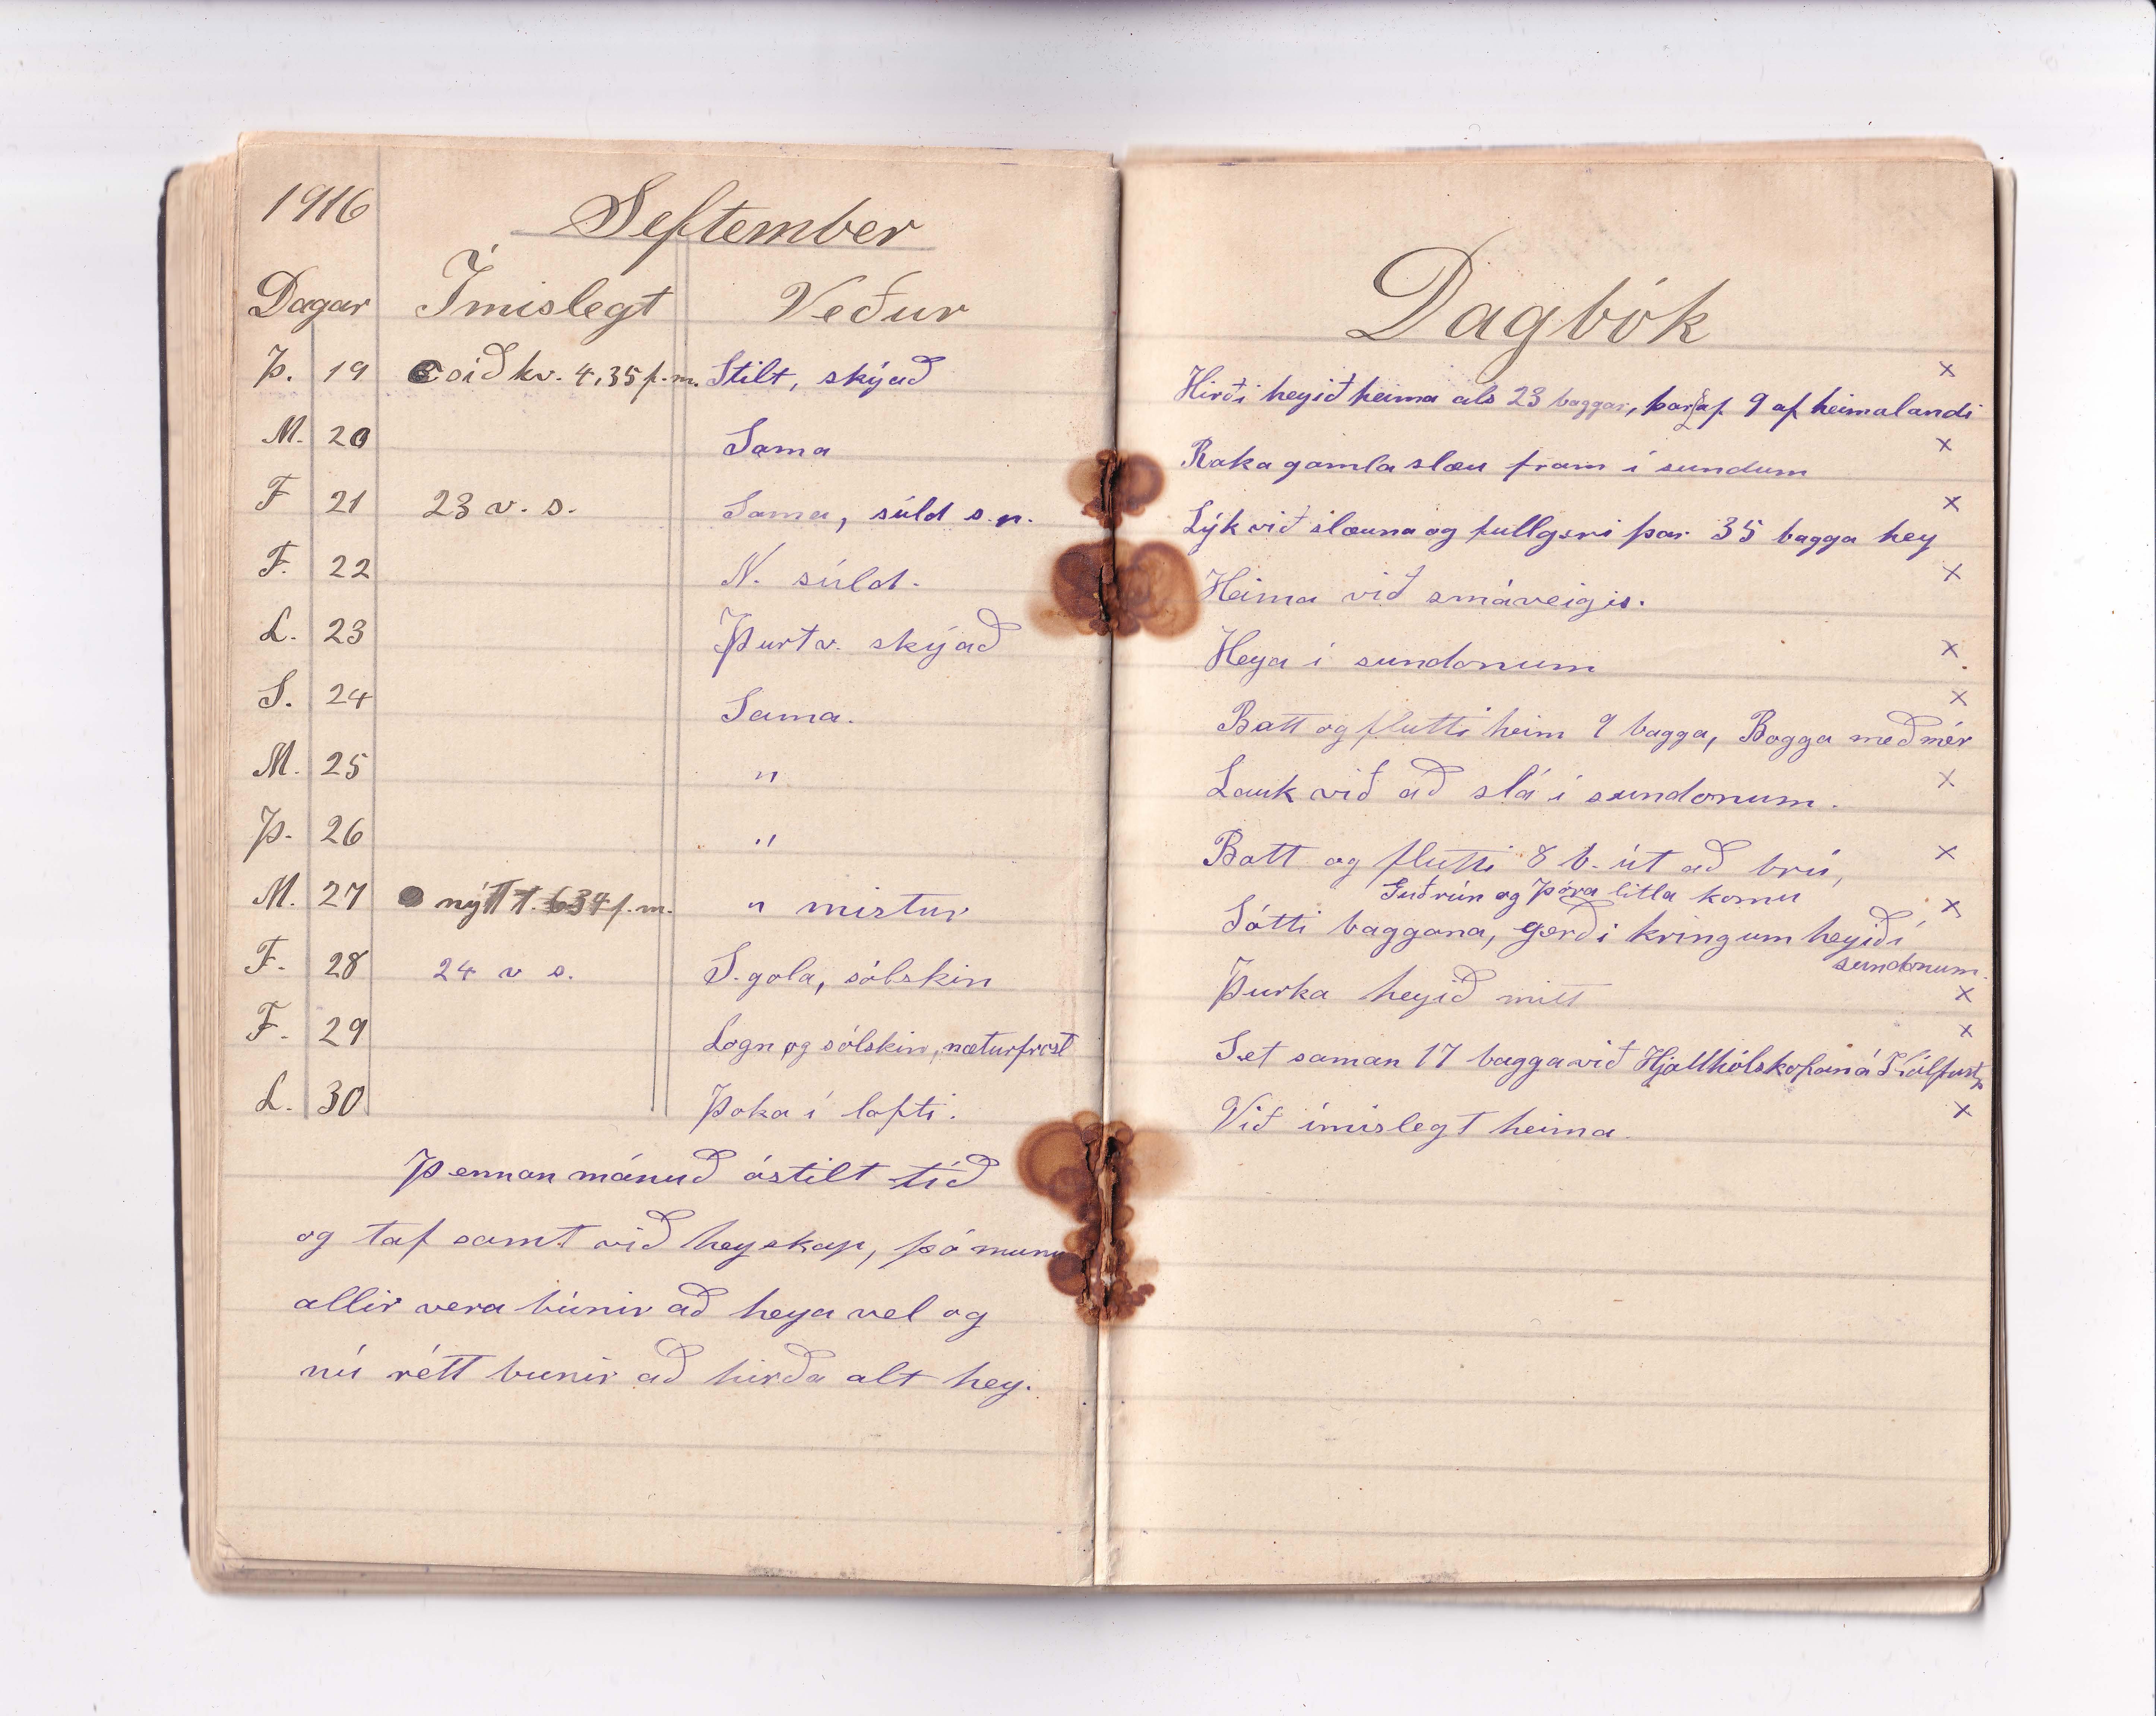 1916
September
Dagar Ímislegt Veður
Þ. 19 síð kv. 4,35 f.m. Stilt, skýað
M. 20 Sama
F 21 23 v. s. Sama, súld s.n.
F. 22 N. súld.
L. 23 Þurt v. skýað
S. 24 Sama.
M. 25 "
Þ. 26 "
M. 27 nýtt t. 634 f.m. " mistur
F. 28 24 v s. S. gola, sólskin
F. 29 Logn og sólskin, næturfrost
L. 30 Þoka í lofti.
Þennan mánuð óstilt tíð
og taf samt við heyskap, þó munu
allir vera búnir að heya vel og
nú rétt bunir að hirða alt hey.
Dagbók
Hirði heyið heima als 23 baggar, þar af 9 af heimalandi x
Raka gamla slæu fram í sundum x
Lýk við slæuna og fullgeri þar 35 bagga hey x
Heima við smáveigis. x
Heya í sundonum x
Batt og flutti heim 9 bagga, Bogga með mér x
Lauk við að slá í sundonum. x
Batt og flutti 8 b. út að brú, x
Guðrún og Þóra litla komu
Sótti baggana, gerði kringum heyið í x
sundonum.
Þurka heyið mitt x
Set saman 17 bagga við Hjallhólskofana á x
Við ímislegt heima x